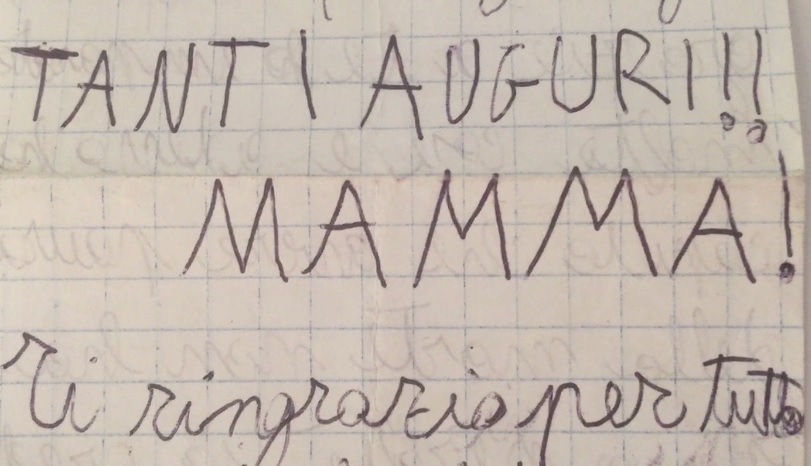 TANTI AUGURI!!
MAMMA!
Ti ringrazio per tutto